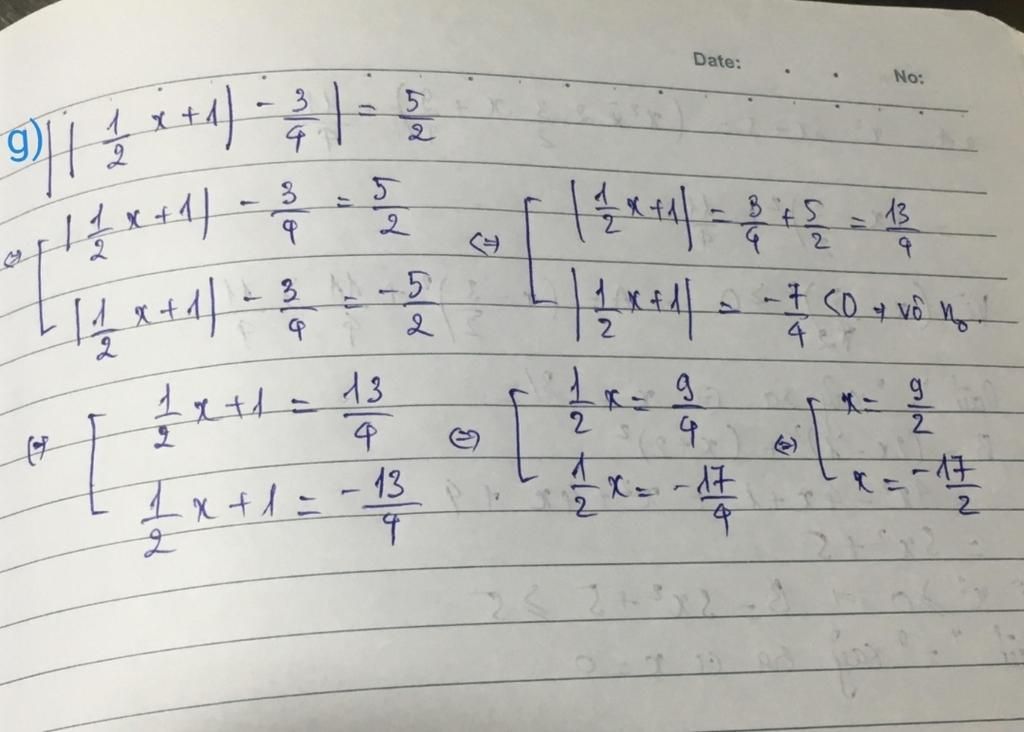 Date: . . No:
g) | | 1/2 x + 1 | - 3/4 | = 5/2
⇔ [ | 1/2 x + 1 | - 3/4 = 5/2 ⇔ [ | 1/2 x + 1 | = 3/4 + 5/2 = 13/4
| 1/2 x + 1 | - 3/4 = - 5/2 | 1/2 x + 1 | = - 7/4 < 0 → vô n₀.
⇔ [ 1/2 x + 1 = 13/4 ⇔ [ 1/2 x = 9/4 ⇔ [ x = 9/2
1/2 x + 1 = - 13/4 1/2 x = - 17/4 x = - 17/2